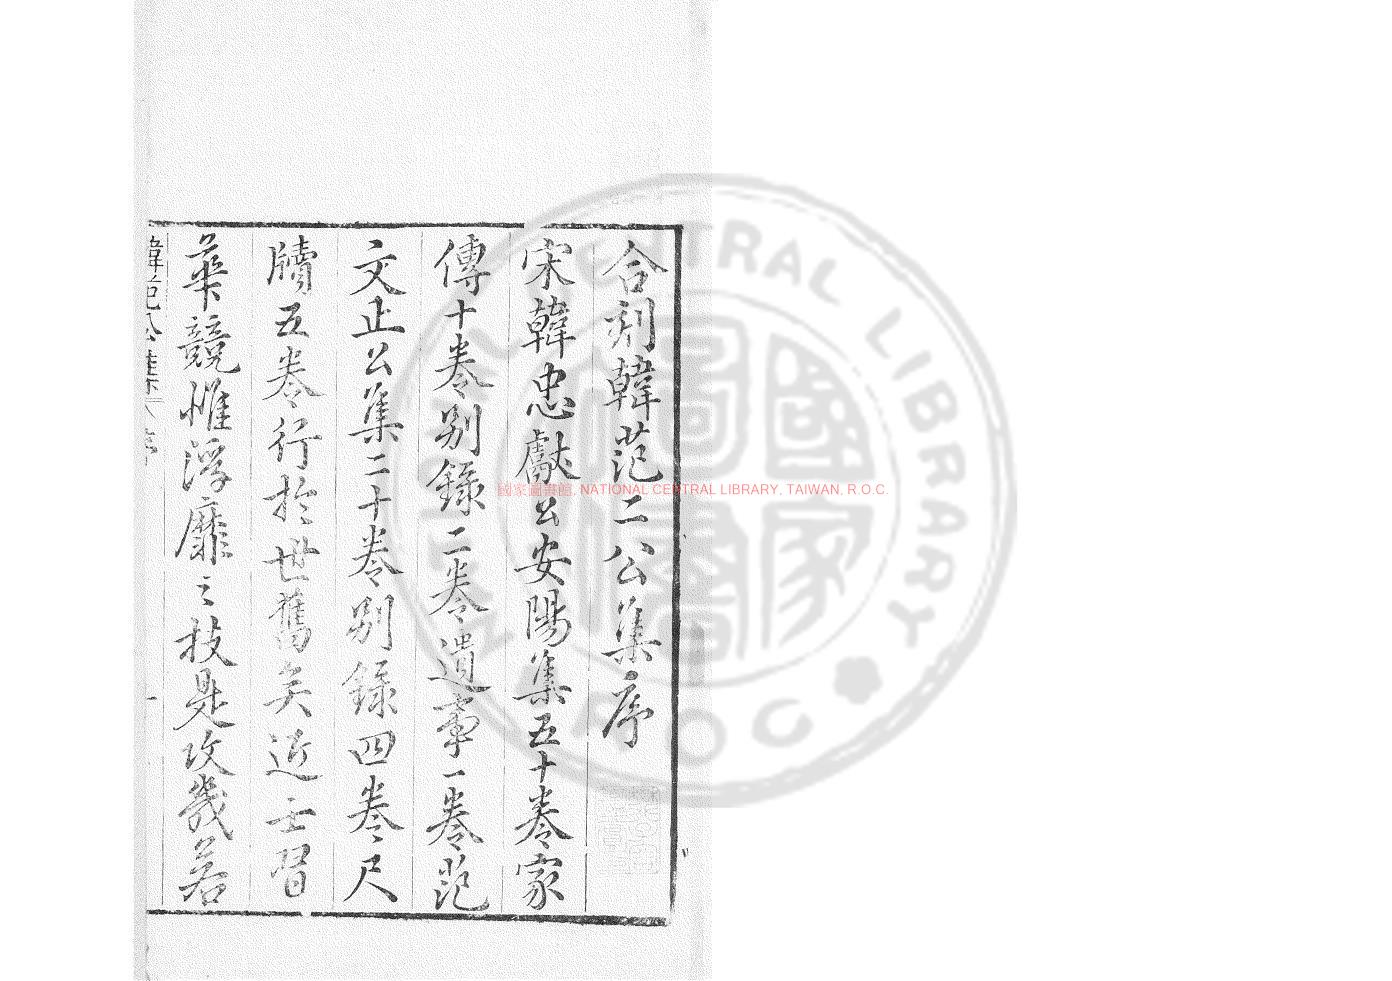 合刻韓范二公集序
宋韓忠獻公安陽集五十卷家
傳十卷别錄二卷遺事一卷范
文正公集二十卷别錄四卷尺
牘五卷行於世舊矣近士習
華競惟浮靡之技是攻幾若
韓范公集 序 一
國家圖書館, NATIONAL CENTRAL LIBRARY, TAIWAN, R.O.C.
CENTRAL LIBRARY
R O C
國家圖書